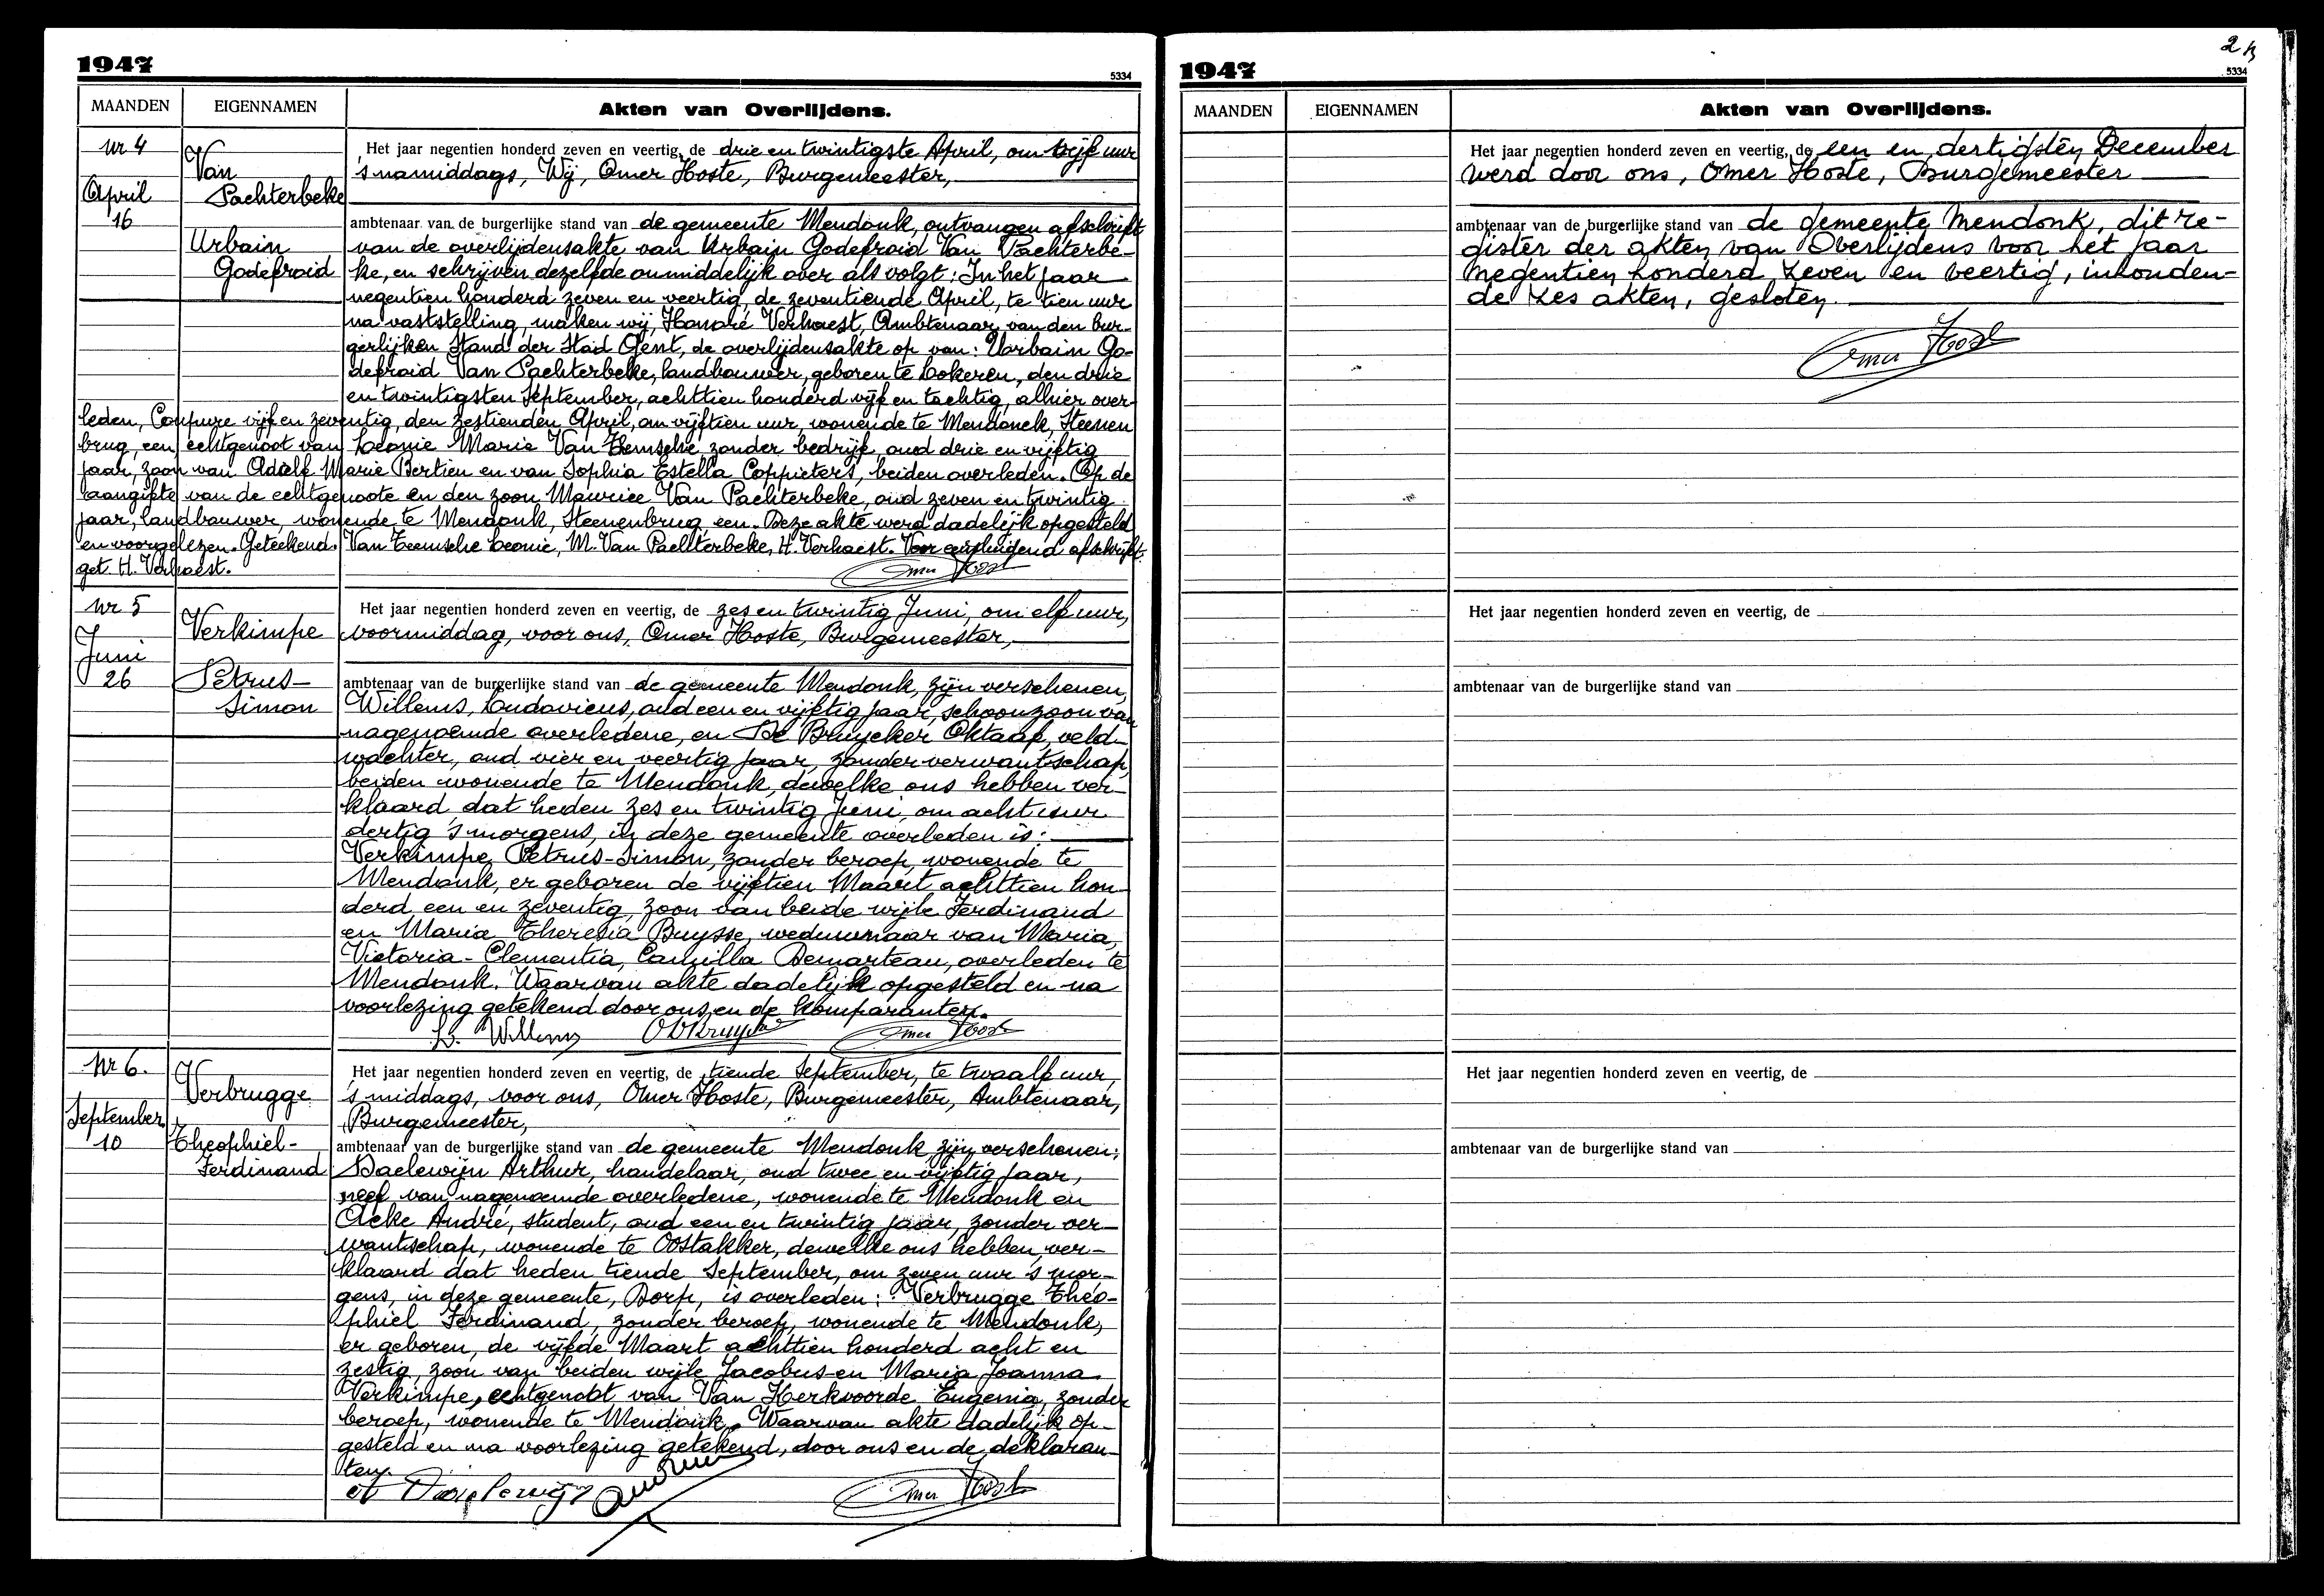 1947
5334
MAANDEN EIGENNAMEN Akten van Overlijdens.
Nr 4
April
16
Van
Pachterbeke
Urbain
Godefroid
Het jaar negentien honderd zeven en veertig, de drie en twintigste April, om vijf uur
's namiddags, Wij, Omer Hoste, Burgemeester,
ambtenaar van de burgerlijke stand van de gemeente Mendonk, ontvangen afschrift
van de overlijdensakte van Urbain Godefroid Van Pachterbe-
ke, en schrijven dezelfde onmiddelijk over als volgt: In het jaar
negentien honderd zeven en veertig, de zeventiende April, te tien uur
na vaststelling, maken wij, Honoré Verhaest, Ambtenaar van den bur-
gerlijken Stand der Stad Gent, de overlijdensakte op van: Urbain Go-
defroid Van Pachterbeke, landbouwer, geboren te Lokeren, den drie
en twintigsten September, achttien honderd vijf en tachtig, alhier over-
leden, Coupure vijf en zeventig, den zestienden April, om vijftien uur, wonende te Mendonck, Steenen
brug, een, echtgenoot van Leonie Marie Van Eemsche zonder bedrijf, oud drie en vijftig
jaar, zoon van Adolf Marie Bertien en van Sophia Estella Coppieters, beiden overleden. Op de
aangifte van de echtgenoote en den zoon Maurice Van Pachterbeke, oud zeven en twintig
jaar, landbouwer, wonende te Mendonk, Steenenbrug, een. Deze akte werd dadelijk opgesteld
en voorgelezen. Geteekend. Van Eemsche Leonie, M. Van Pachterbeke, H. Verhaest. Voor eensluidend afschrift.
get. H. Verhaest.
Omer Hoste
Nr 5
Juni
26
Verkimpe
Petrus-
Simon
Het jaar negentien honderd zeven en veertig, de zes en twintig Juni, om elf uur,
voormiddag, voor ons, Omer Hoste, Burgemeester,
ambtenaar van de burgerlijke stand van de gemeente Mendonk, zijn verschenen,
Willems, Ludovicus, oud een en vijftig jaar, schoonzoon van
nagenoemde overledene, en De Bruycker Oktaaf, veld-
wachter, oud vier en veertig jaar, zonder verwantschap,
beiden wonende te Mendonk, dewelke ons hebben ver-
klaard dat heden zes en twintig Juni, om acht uur
dertig 's morgens, in deze gemeente overleden is:
Verkimpe, Petrus-Simon, zonder beroep, wonende te
Mendonk, er geboren de vijftien Maart achttien hon-
derd een en zeventig, zoon van beide wijle Ferdinand
en Maria Theresia Buysse, weduwnaar van Maria,
Victoria-Clementia, Camilla Demarteau, overleden te
Mendonk. Waarvan akte dadelijk opgesteld en na
voorlezing getekend door ons en de komparanten.
L. Willems O De Bruycker Omer Hoste
Nr 6.
September
10
Verbrugge
Theophiel-
Ferdinand
Het jaar negentien honderd zeven en veertig, de tiende September, te twaalf uur,
's middags, voor ons, Omer Hoste, Burgemeester, Ambtenaar,
Burgemeester,
ambtenaar van de burgerlijke stand van de gemeente Mendonk zijn verschenen:
Daelewijn Arthur, handelaar, oud twee en vijftig jaar,
neef van nagenoemde overledene, wonende te Mendonk en
Acke André, student, oud een en twintig jaar, zonder ver-
wantschap, wonende te Oostakker, dewelke ons hebben ver-
klaard dat heden tiende September, om zeven uur 's mor-
gens, in deze gemeente, Dorp, is overleden: Verbrugge Theo-
phiel Ferdinand, zonder beroep, wonende te Mendonk,
er geboren, de vijfde Maart achttien honderd acht en
zestig, zoon van beiden wijle Jacobus en Maria Joanna
Verkimpe, echtgenoot van Van Herkvoorde Eugenia, zonder
beroep, wonende te Mendonk. Waarvan akte dadelijk op-
gesteld en na voorlezing getekend, door ons en de deklaran-
ten.
Omer Hoste
1947
2
5334
MAANDEN EIGENNAMEN Akten van Overlijdens.
Het jaar negentien honderd zeven en veertig, de een en dertigsten December
werd door ons, Omer Hoste, Burgemeester
ambtenaar van de burgerlijke stand van de gemeente Mendonk, dit re-
gister der akten van Overlijdens voor het jaar
negentien honderd zeven en veertig, inhouden-
de zes akten, gesloten
Omer Hoste
Het jaar negentien honderd zeven en veertig, de
ambtenaar van de burgerlijke stand van
Het jaar negentien honderd zeven en veertig, de
ambtenaar van de burgerlijke stand van